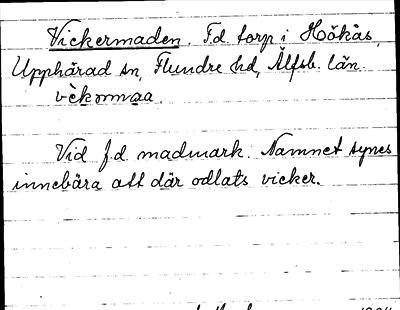 Vickermaden. Fd torp i Hökås,
Upphärad sn, Flundre hd, Älfsb. län.
vèkəmmaa.
Vid f.d madmark. Namnet synes
innebära att där odlats vicker.